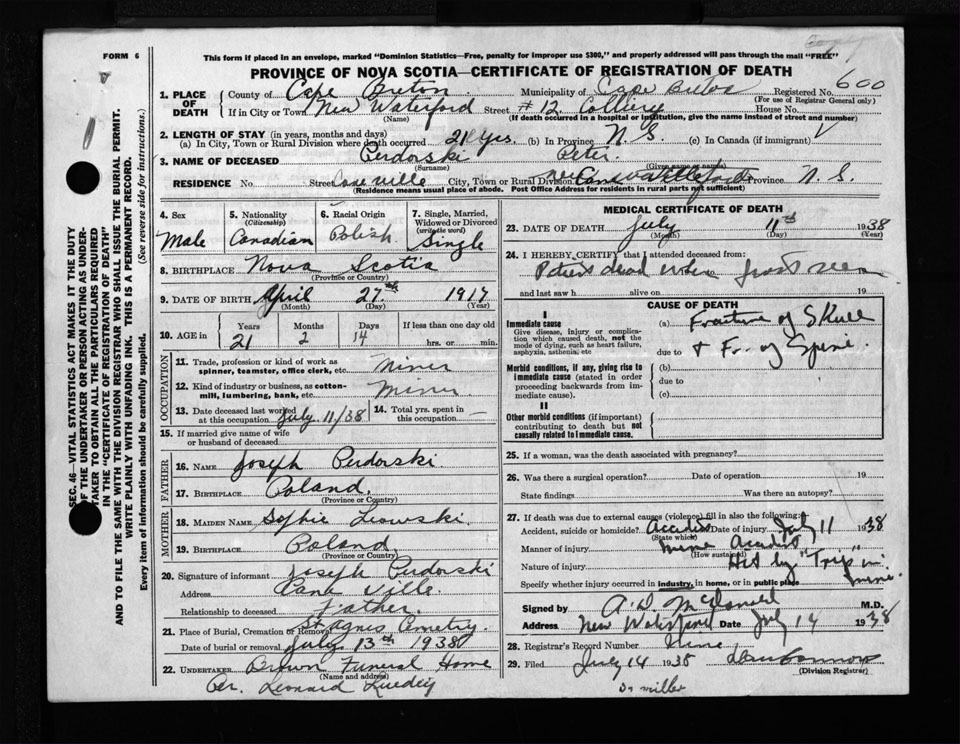 FORM 6
This form if placed in an envelope, marked "Dominion Statistics—Free, penalty for improper use $300," and properly addressed will pass through the mail "FREE"
PROVINCE OF NOVA SCOTIA—CERTIFICATE OF REGISTRATION OF DEATH
600
1. PLACE OF DEATH County of Cape Breton Municipality of Cape Breton Registered No.
(For use of Registrar General only)
If in City or Town New Waterford Street #12 Colliery House No.
(Name) (If death occurred in a hospital or institution, give the name instead of street and number)
2. LENGTH OF STAY (in years, months and days)
(a) In City, Town or Rural Division where death occurred 21 yrs. (b) In Province N.S. (c) In Canada (if immigrant)
3. NAME OF DECEASED Perdorski Peter.
(Surname) (Given name or names)
RESIDENCE No. Street City, Town or Rural Division Province N.S.
(Residence means usual place of abode. Post Office Address for residents in rural parts not sufficient)
4. Sex Male
5. Nationality (Citizenship) Canadian
6. Racial Origin Polish
7. Single, Married, Widowed or Divorced (write the word) Single
8. BIRTHPLACE Nova Scotia
(Province or Country)
9. DATE OF BIRTH April 27th 1917
(Month) (Day) (Year)
10. AGE in Years 21 Months 2 Days 14 If less than one day old hrs. or min.
OCCUPATION
11. Trade, profession or kind of work as spinner, teamster, office clerk, etc. Miner
12. Kind of industry or business, as cotton-mill, lumbering, bank, etc. Miner
13. Date deceased last worked at this occupation July 11/38 14. Total yrs. spent in this occupation —
15. If married give name of wife or husband of deceased
FATHER
16. NAME Joseph Perdorski
17. BIRTHPLACE Poland.
(Province or Country)
MOTHER
18. MAIDEN NAME Sophie
19. BIRTHPLACE Poland
(Province or Country)
20. Signature of informant Joseph Perdorski
Address Ville.
Relationship to deceased Father.
21. Place of Burial, Cremation or Removal St Agnes Cemetry.
Date of burial or removal July 13th 1938
22. UNDERTAKER Brown Funeral Home
(Name and address)
Per. Leonard
MEDICAL CERTIFICATE OF DEATH
23. DATE OF DEATH July 11th 1938
(Month) (Day) (Year)
24. I HEREBY CERTIFY that I attended deceased from:
dead when first seen
and last saw h alive on 19
CAUSE OF DEATH
I
Immediate cause (a) Fracture of Skull
Give disease, injury or complication which caused death, not the mode of dying, such as heart failure, asphyxia, asthenia, etc due to + Fr. of Spine.
Morbid conditions, if any, giving rise to immediate cause (stated in order proceeding backwards from immediate cause). (b)
due to
(c)
II
Other morbid conditions (if important) contributing to death but not causally related to immediate cause.
25. If a woman, was the death associated with pregnancy?
26. Was there a surgical operation? Date of operation 19
State findings Was there an autopsy?
27. If death was due to external causes (violence) fill in also the following:
Accident, suicide or homicide? Accident Date of injury July 11 1938
(State which)
Manner of injury mine Accident
(How sustained)
Nature of injury Hit by "Trip" in mine.
Specify whether injury occurred in industry, in home, or in public place
Signed by A.D. McDonald M.D.
Address New Waterford Date July 14 1938
28. Registrar's Record Number
29. Filed July 14 1938
(Division Registrar)
Dr Miller
SEC. 46—VITAL STATISTICS ACT MAKES IT THE DUTY OF THE UNDERTAKER OR PERSON ACTING AS UNDERTAKER TO OBTAIN ALL THE PARTICULARS REQUIRED IN THE "CERTIFICATE OF REGISTRATION OF DEATH" AND TO FILE THE SAME WITH THE DIVISION REGISTRAR WHO SHALL ISSUE THE BURIAL PERMIT.
WRITE PLAINLY WITH UNFADING INK. THIS IS A PERMANENT RECORD.
Every item of information should be carefully supplied. (See reverse side for instructions.)